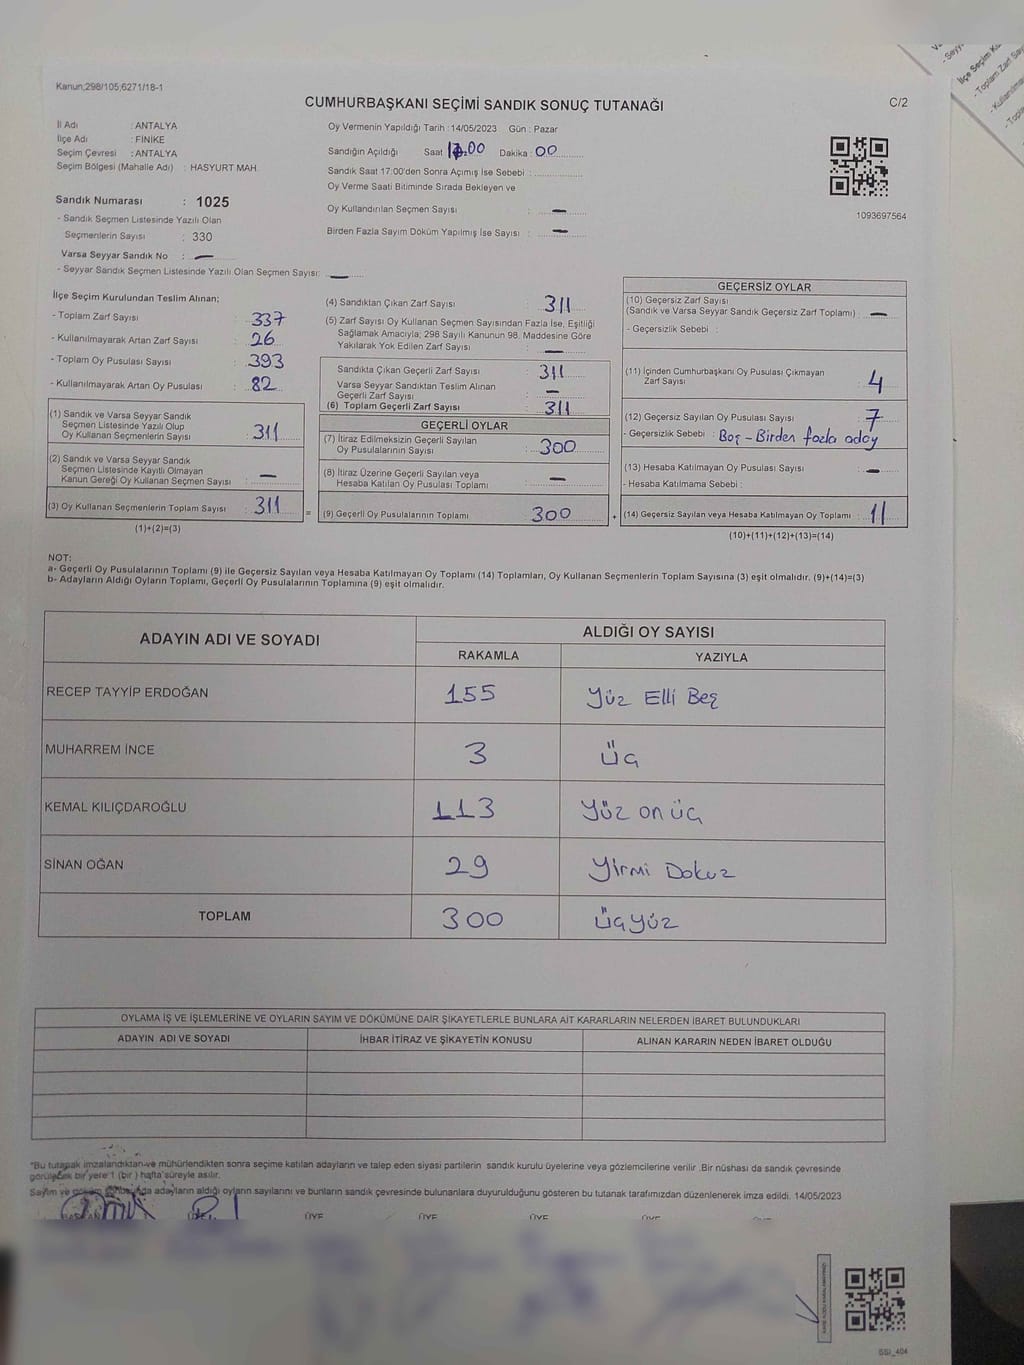 Kanun;298/105;6271/18-1
CUMHURBAŞKANI SEÇİMİ SANDIK SONUÇ TUTANAĞI
C/2
İl Adı : ANTALYA
İlçe Adı : FİNİKE
Seçim Çevresi : ANTALYA
Seçim Bölgesi (Mahalle Adı) : HASYURT MAH.
Sandık Numarası : 1025
- Sandık Seçmen Listesinde Yazılı Olan
Seçmenlerin Sayısı : 330
Varsa Seyyar Sandık No : —
- Seyyar Sandık Seçmen Listesinde Yazılı Olan Seçmen Sayısı: —
Oy Vermenin Yapıldığı Tarih : 14/05/2023 Gün : Pazar
Sandığın Açıldığı Saat 17.00 Dakika : 00
Sandık Saat 17:00'den Sonra Açımış İse Sebebi :
Oy Verme Saati Bitiminde Sırada Bekleyen ve
Oy Kullandırılan Seçmen Sayısı : —
Birden Fazla Sayım Döküm Yapılmış İse Sayısı : —
1093697564
İlçe Seçim Kurulundan Teslim Alınan;
- Toplam Zarf Sayısı : 337
- Kullanılmayarak Artan Zarf Sayısı : 26
- Toplam Oy Pusulası Sayısı : 393
- Kullanılmayarak Artan Oy Pusulası : 82
(1) Sandık ve Varsa Seyyar Sandık
Seçmen Listesinde Yazılı Olup
Oy Kullanan Seçmenlerin Sayısı : 311
(2) Sandık ve Varsa Seyyar Sandık
Seçmen Listesinde Kayıtlı Olmayan
Kanun Gereği Oy Kullanan Seçmen Sayısı : —
(3) Oy Kullanan Seçmenlerin Toplam Sayısı : 311
(1)+(2)=(3)
(4) Sandıktan Çıkan Zarf Sayısı : 311
(5) Zarf Sayısı Oy Kullanan Seçmen Sayısından Fazla İse, Eşitliği
Sağlamak Amacıyla; 298 Sayılı Kanunun 98. Maddesine Göre
Yakılarak Yok Edilen Zarf Sayısı : —
Sandıkta Çıkan Geçerli Zarf Sayısı : 311
Varsa Seyyar Sandıktan Teslim Alınan
Geçerli Zarf Sayısı : —
(6) Toplam Geçerli Zarf Sayısı : 311
GEÇERLİ OYLAR
(7) İtiraz Edilmeksizin Geçerli Sayılan
Oy Pusulalarının Sayısı : 300
(8) İtiraz Üzerine Geçerli Sayılan veya
Hesaba Katılan Oy Pusulası Toplamı : —
=
(9) Geçerli Oy Pusulalarının Toplamı : 300
+
GEÇERSİZ OYLAR
(10) Geçersiz Zarf Sayısı
(Sandık ve Varsa Seyyar Sandık Geçersiz Zarf Toplamı) : —
- Geçersizlik Sebebi :
(11) İçinden Cumhurbaşkanı Oy Pusulası Çıkmayan
Zarf Sayısı : 4
(12) Geçersiz Sayılan Oy Pusulası Sayısı : 7
- Geçersizlik Sebebi : Boş - Birden fazla aday
(13) Hesaba Katılmayan Oy Pusulası Sayısı : —
- Hesaba Katılmama Sebebi :
(14) Geçersiz Sayılan veya Hesaba Katılmayan Oy Toplamı : 11
(10)+(11)+(12)+(13)=(14)
NOT:
a- Geçerli Oy Pusulalarının Toplamı (9) ile Geçersiz Sayılan veya Hesaba Katılmayan Oy Toplamı (14) Toplamları, Oy Kullanan Seçmenlerin Toplam Sayısına (3) eşit olmalıdır. (9)+(14)=(3)
b- Adayların Aldığı Oyların Toplamı, Geçerli Oy Pusulalarının Toplamına (9) eşit olmalıdır.
ADAYIN ADI VE SOYADI
ALDIĞI OY SAYISI
RAKAMLA YAZIYLA
RECEP TAYYİP ERDOĞAN 155 Yüz Elli Beş
MUHARREM İNCE 3 üç
KEMAL KILIÇDAROĞLU 113 Yüz on üç
SİNAN OĞAN 29 Yirmi Dokuz
TOPLAM 300 üçyüz
OYLAMA İŞ VE İŞLEMLERİNE VE OYLARIN SAYIM VE DÖKÜMÜNE DAİR ŞİKAYETLERLE BUNLARA AİT KARARLARIN NELERDEN İBARET BULUNDUKLARI
ADAYIN ADI VE SOYADI İHBAR İTİRAZ VE ŞİKAYETİN KONUSU ALINAN KARARIN NEDEN İBARET OLDUĞU
*Bu tutanak imzalandıktan ve mühürlendikten sonra seçime katılan adayların ve talep eden siyasi partilerin sandık kurulu üyelerine veya gözlemcilerine verilir .Bir nüshası da sandık çevresinde
görülecek bir yere 1 (bir ) hafta süreyle asılır.
Sayım ve döküm sonucunda adayların aldığı oyların sayılarını ve bunların sandık çevresinde bulunanlara duyurulduğunu gösteren bu tutanak tarafımızdan düzenlenerek imza edildi. 14/05/2023
BAŞKAN ÜYE ÜYE ÜYE ÜYE ÜYE
SSI_404